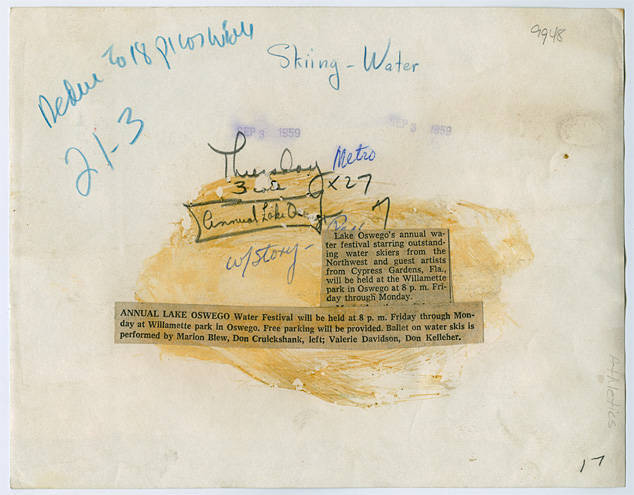 9948
Reduce to 18 picas wide
Skiing - Water
21-3
SEP 3 1959
SEP 3 1959
Thursday Metro
3 cols X27
Annual Lake
w/story-
Lake Oswego's annual wa-
ter festival starring outstand-
ing water skiers from the
Northwest and guest artists
from Cypress Gardens, Fla.,
will be held at the Willamette
park in Oswego at 8 p. m. Fri-
day through Monday.
ANNUAL LAKE OSWEGO Water Festival will be held at 8 p. m. Friday through Mon-
day at Willamette park in Oswego. Free parking will be provided. Ballet on water skis is
performed by Marion Blew, Don Cruickshank, left; Valerie Davidson, Don Kelleher.
Athletics
17